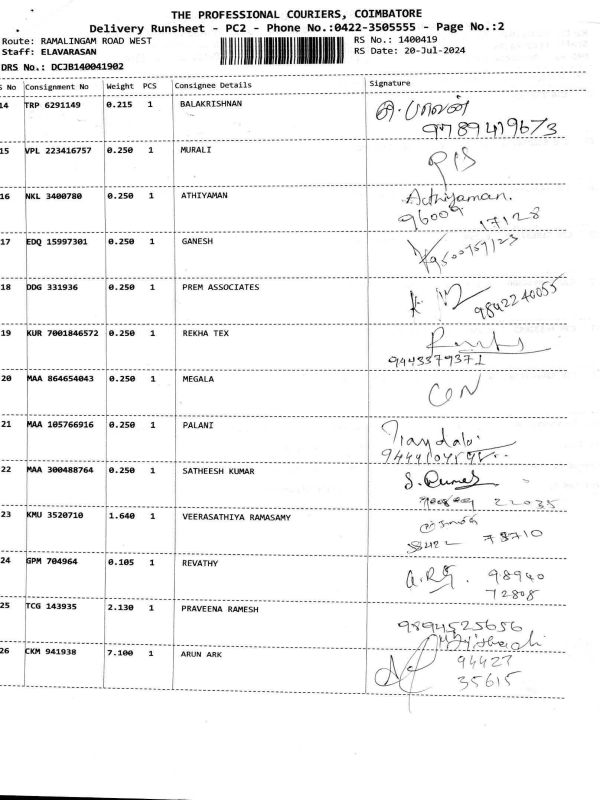 THE PROFESSIONAL COURIERS, COIMBATORE
Delivery Runsheet - PC2 - Phone No.:0422-3505555 - Page No.:2
Route: RAMALINGAM ROAD WEST
RS No.: 1400419
Staff: ELAVARASAN
RS Date: 20-Jul-2024
DRS No.: DCJB140041902
S No Consignment No Weight PCS Consignee Details Signature
14 TRP 6291149 0.215 1 BALAKRISHNAN
9789419673
15 VPL 223416757 0.250 1 MURALI
16 NKL 3400780 0.250 1 ATHIYAMAN Acthiyaman.
96009
17128
17 EDQ 15997301 0.250 1 GANESH
18 DDG 331936 0.250 1 PREM ASSOCIATES 9842240055
19 KUR 7001846572 0.250 1 REKHA TEX
9443379371
20 MAA 864654043 0.250 1 MEGALA CON
21 MAA 105766916 0.250 1 PALANI
22 MAA 300488764 0.250 1 SATHEESH KUMAR
22035
23 KMU 3520710 1.640 1 VEERASATHIYA RAMASAMY
73710
24 GPM 704964 0.105 1 REVATHY 98940
72808
25 TCG 143935 2.130 1 PRAVEENA RAMESH
9894525656
26 CKM 941938 7.100 1 ARUN ARK 94427
35615